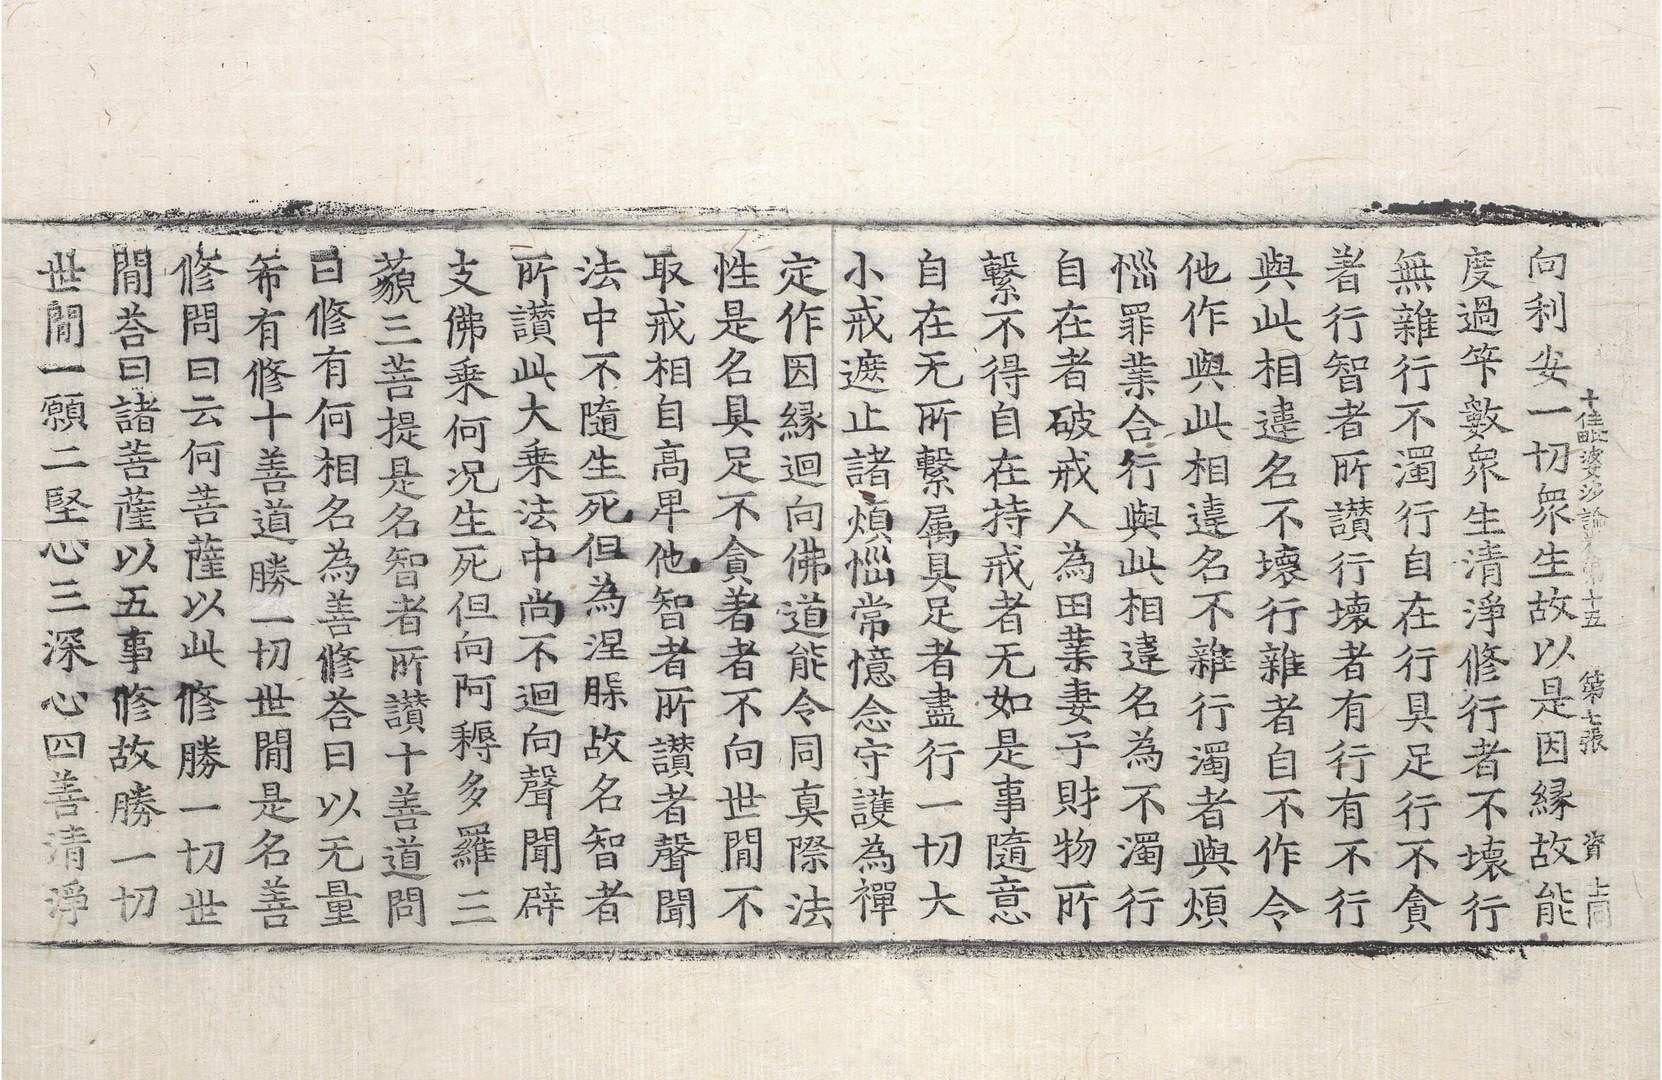 向利安一切衆生故以是因縁故能
十住毗婆沙論卷第十五 第七張 資 上同
度過竿數衆生清淨修行者不壞行
無雜行不濁行自在行具足行不貪
著行智者所讃行壞者有行有不行
與此相違名不壞行雜者自不作令
他作與此相違名不雜行濁者與煩
惱罪業合行與此相違名為不濁行
自在者破戒人為田業妻子財物所
繫不得自在持戒者无如是事隨意
自在无所繫属具足者盡行一切大
小戒遮止諸煩惱常憶念守護為禪
定作因縁迴向佛道能令同真際法
性是名具足不貪著者不向世間不
取戒相自高卑他智者所讃者聲聞
法中不隨生死但為涅槃故名智者
所讃此大乗法中尚不迴向聲聞辟
支佛乗何况生死但向阿耨多羅三
藐三菩提是名智者所讃十善道問
曰修有何相名為善修荅曰以无量
希有修十善道勝一切世間是名善
修問曰云何菩薩以此修勝一切世
間荅曰諸菩薩以五事修故勝一切
世間一願二堅心三深心四善清淨